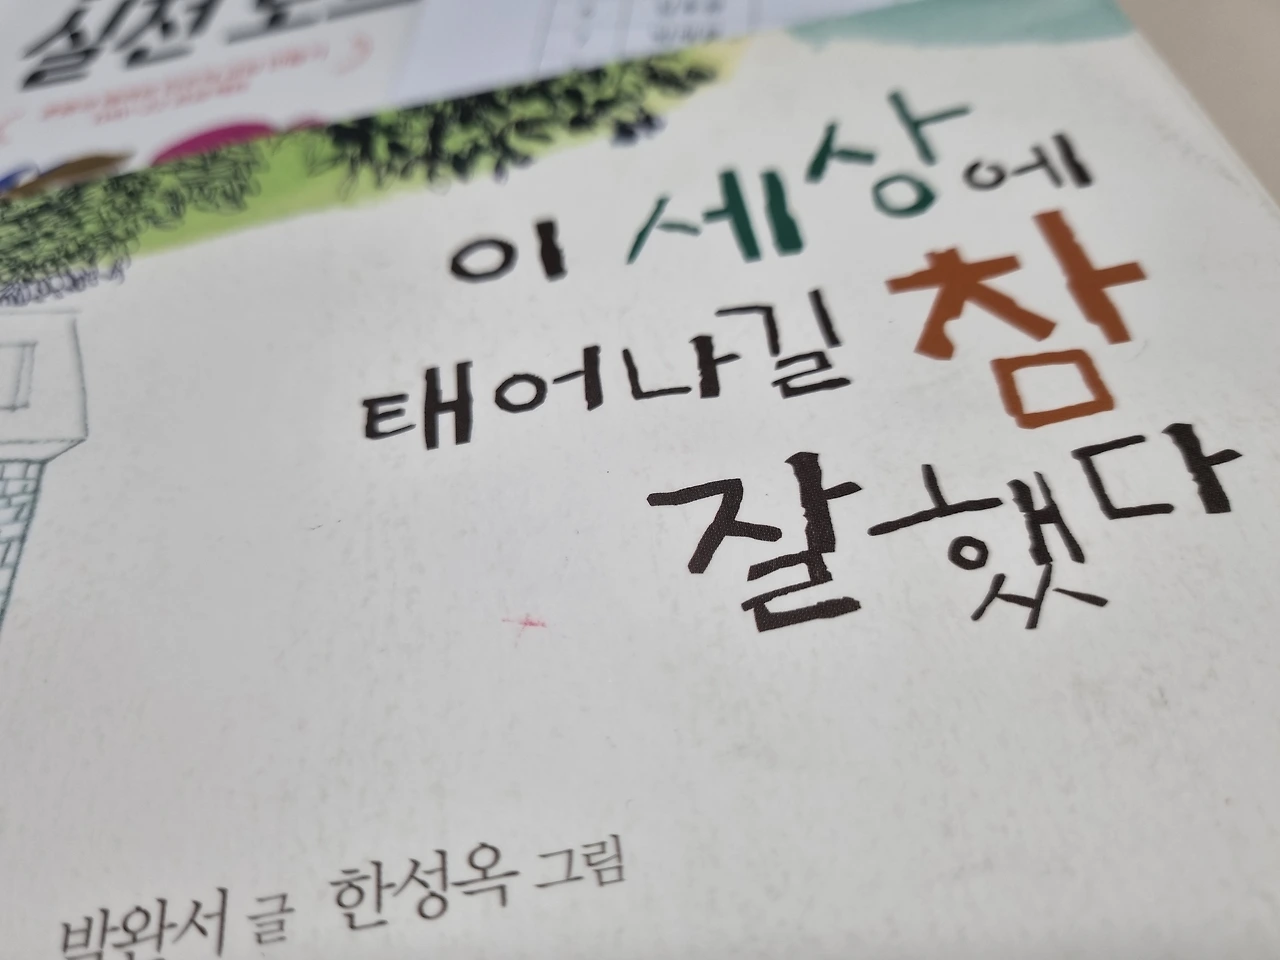 실전 노트
이 세상에
태어나길 참
잘했다
박완서 글 한성옥 그림